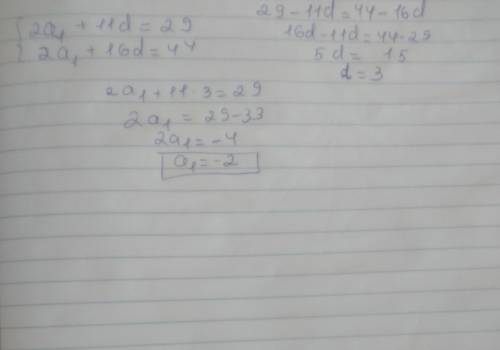 2a₁ + 11d = 29
2a₁ + 16d = 44
29 - 11d = 44 - 16d
16d - 11d = 44 - 29
5d = 15
d = 3
2a₁ + 11 · 3 = 29
2a₁ = 29 - 33
2a₁ = -4
a₁ = -2